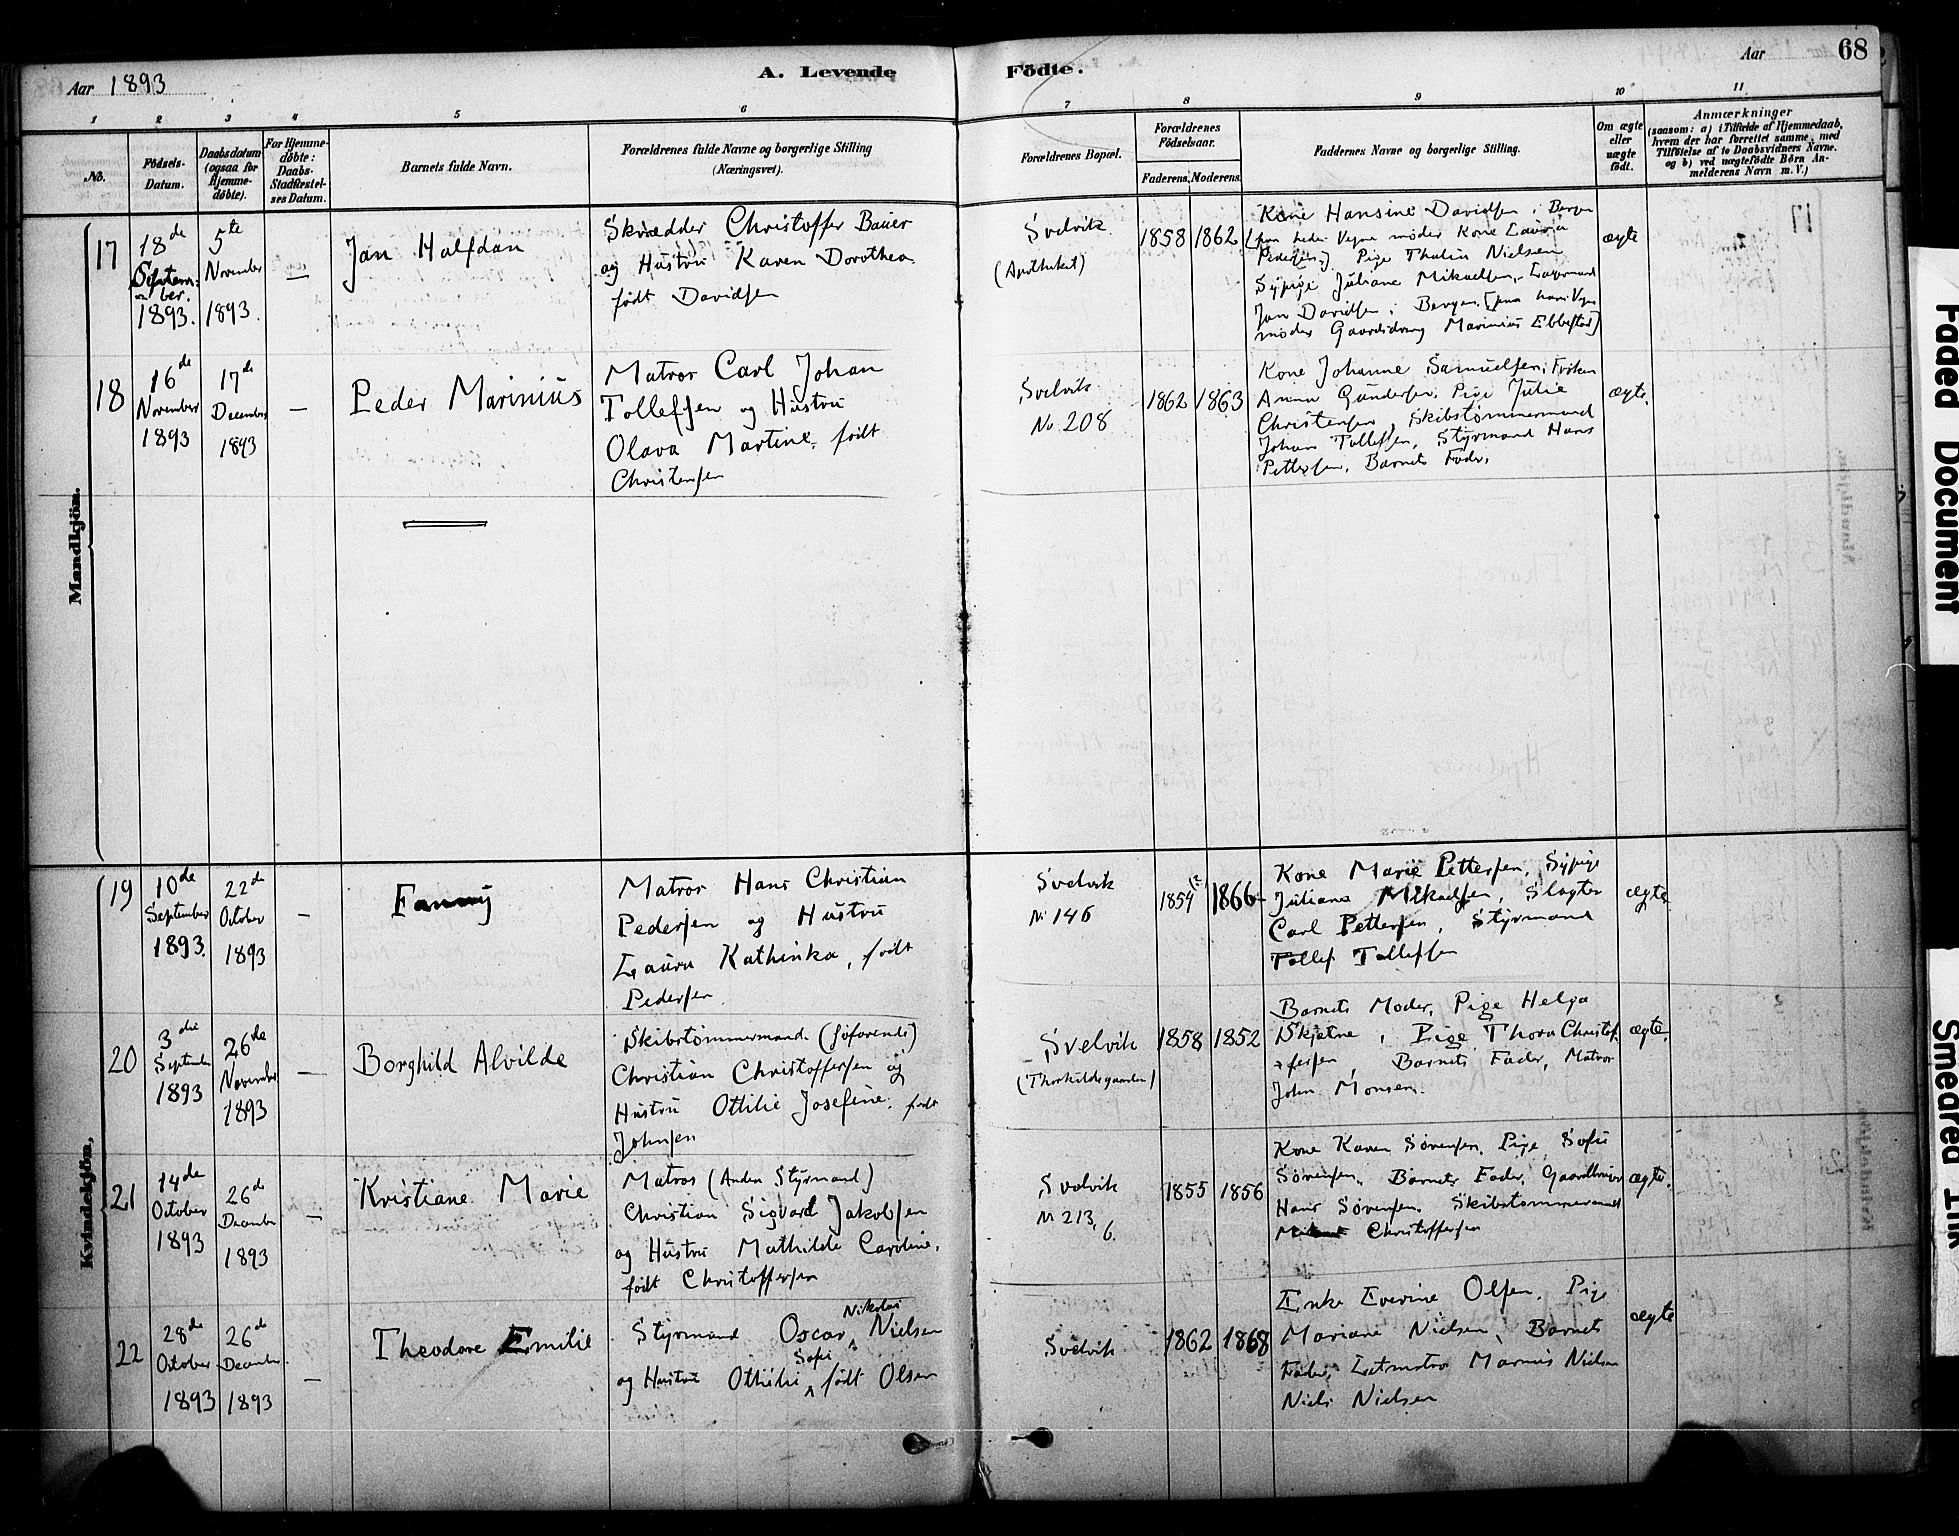 Aar 1893
A. Levende
Födte.
Aar
68
1
2
3
4
5
6
7
8
9
10
11
No.
Födsels-
Datum.
Daabsdatum
(ogsaa for
Hjemme-
döbte).
For Hjemme-
döbte:
Daabs-
Stadfæstel-
ses Datum.
Barnets fulde Navn.
Forældrenes fulde Navne og borgerlige Stilling
(Næringsvei).
Forældrenes Bopæl.
Forældrenes
Födselsaar.
Faderens. Moderens.
Faddernes Navne og borgerlige Stilling.
Om ægte
eller
uægte
födt.
Anmærkninger
(saasom: a) i Tilfælde af Hjemmedaab,
hvem der har forrettet samme, med
Tilföielse af to Daabsvidners Navne.
og b) ved uægtefödte Börn An-
melderens Navn m. V.)
Mandkjön.
17
18de
Septem-
ber.
1893.
5te
November
1893.
—
Jan Halfdan
Skrædder Christoffer Bauer
og Hustru Karen Dorothea
født Davidsen
Svelvik.
(Apotheket)
1858
1862
Kone Hansine Davidsen i Bergen
(paa hendes Vegne møder Kone Lavra
Pedersen) Pige Thalia Nielsen
Sypige Juliane Mikaelsen,
Jan Davidsen i Bergen [paa hans Vegne
møder Gaardsdreng Marinius Ebbestad]
ægte
18
16de
November
1893
17de
December
1893
—
Peder Marinius
Matros Carl Johan
Tollefsen og Hustru
Olava Martine, født
Christensen
Svelvik
No 208
1862
1863
Kone Johanne Samuelsen, Frøken
Anna Gundersen, Pige Julie
Christensen, Skibstømmermand
Johan Tollefsen, Styrmand Hans
Pettersen, Barnets Fader.
ægte.
Kvindekjön.
19
10de
September
1893.
22de
October
1893
—
Fanny
Matros Hans Christian
Pedersen og Hustru
Laura Kathinka, født
Pedersen
Svelvik
No 146
1854
1866
Kone Marie Pettersen, Sypige
Juliane Mikaelsen, Slagter
Carl Pettersen, Styrmand
Tollef Tollefsen
ægte
20
3die
September
1893
26de
November
1893
—
Borghild Alvilde
Skibstømmermand (søfarende)
Christian Christoffersen og
Hustru Ottilie Josefine, født
Johnsen
Svelvik
(Thorkildsgaarden)
1858
1852
Barnets Moder, Pige Helga
Skjetne, Pige Thora Christof-
fersen Barnets Fader, Matros
John Monsen.
ægte.
21
14de
October
1893
26de
December
1893
—
Kristiane Marie
Matros (Anden Styrmand)
Christian Sigvard Jakobsen
og Hustru Mathilde Caroline,
født Christoffersen
Svelvik
No 213,
6.
1855
1856
Kone Karen Sørensen, Pige Sofie
Sørensen, Barnets Fader, Gaardbruger
Hans Sørensen, Skibstømmermand
Christoffersen
ægte.
22
28de
October
1893
26de
December
1893
—
Theodore Emilie
Nikolai
Styrmand Oscar Nielsen
Sofie
og Hustru Othilie født Olsen
Svelvik
1862
1868
Enke Everine Olsen, Pige
Mariane Nielsen, Barnets
Fader, Letmatros Marius Nielsen
Niels Nielsen
ægte
Faded Document
Smeared Ink